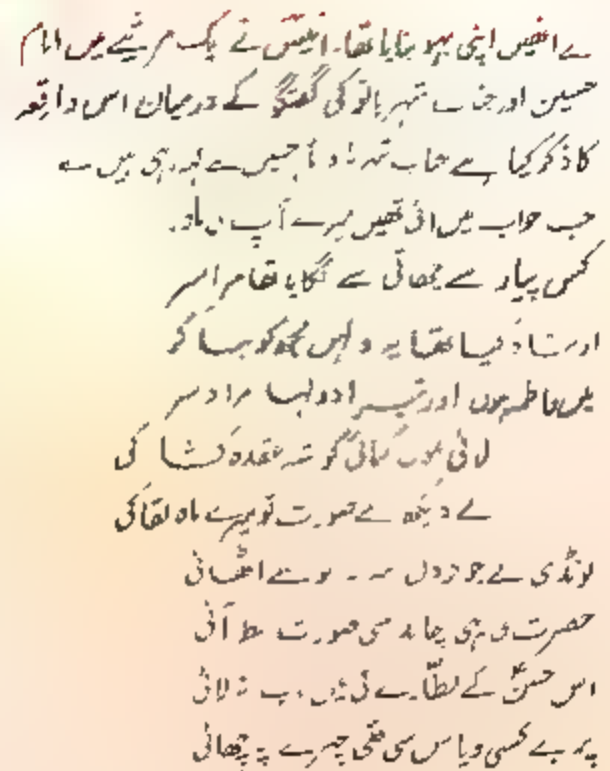 نے انھیں اپنی بہو بنایا تھا۔ انیسؔ نے ایک مرثیے میں امام
حسین اور جناب شہر بانو کی گفتگو کے درمیان اس واقعہ
کا ذکر کیا ہے جناب شہر بانو امام حسین سے کہہ رہی ہیں ۔
جب خواب میں آئی تھیں میرے آپ کی مادر
کس پیار سے چھاتی سے لگایا تھا مرا سر
ارشاد کیا تھا یہ دلہن مجھ کو بنا کر
میں فاطمہ ہوں اور تیرا دولہا مرا دلبر
لائی ہوں کو شہ عقدہ کشا کی
لے دیکھ لے صورت تو میرے ماہ لقا کی
لونڈی نے جو اٹھائی
حضرت کی یہی چاند سی صورت نظر آئی
اس حسن کے نظارے کی نہ لائی
پر بے کسی و یاس سی تھی چہرے پہ چھائی